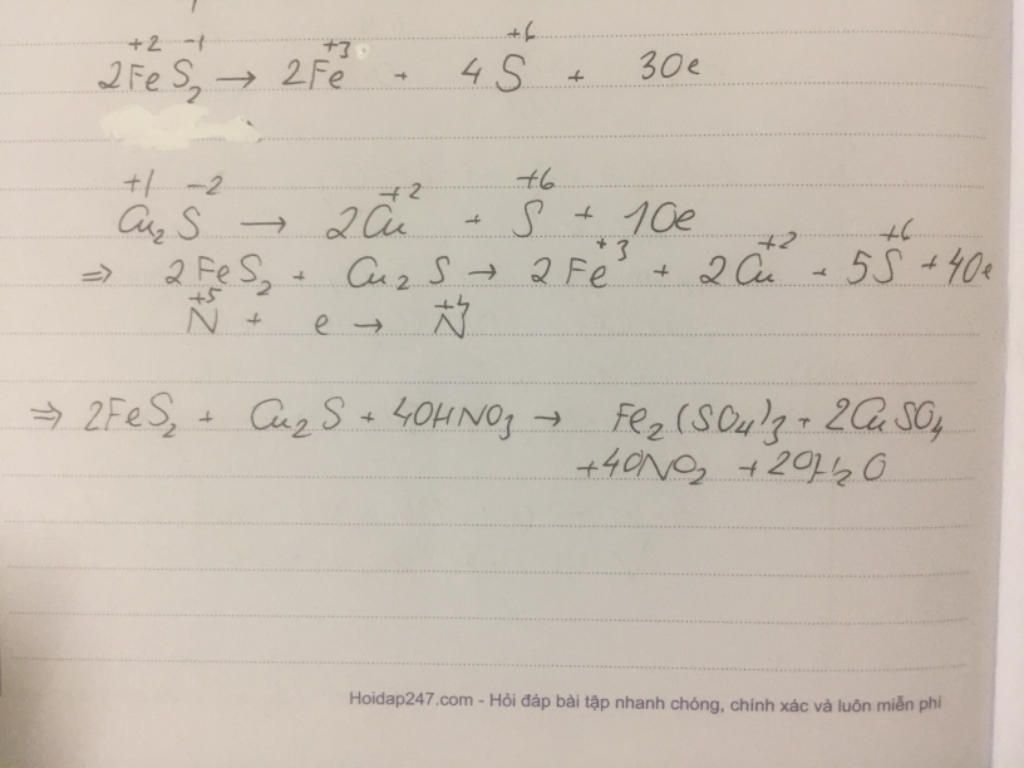 +2 -1 +3 +6
2FeS₂ → 2Fe + 4S + 30e
+1 -2 +2 +6
Cu₂S → 2Cu + S + 10e
+3 +2 +6
⇒ 2FeS₂ + Cu₂S → 2Fe + 2Cu + 5S + 40e
+5 +4
N + e → N
⇒ 2FeS₂ + Cu₂S + 40HNO₃ → Fe₂(SO₄)₃ + 2CuSO₄
+40NO₂ + 20H₂O
Hoidap247.com - Hỏi đáp bài tập nhanh chóng, chính xác và luôn miễn phí